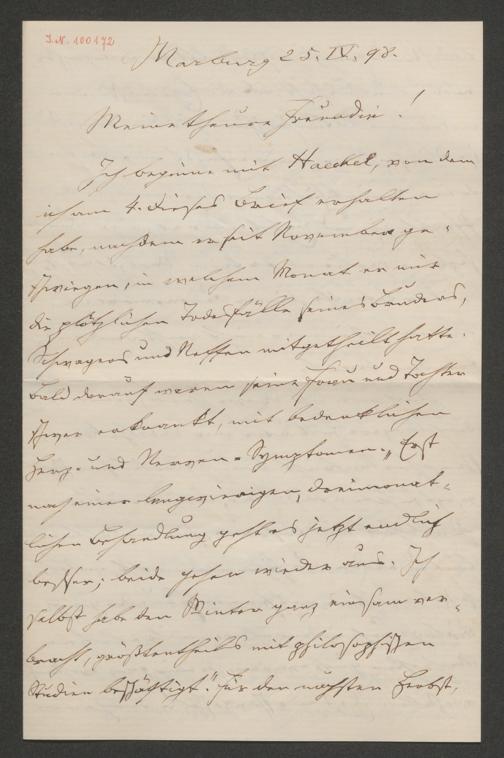 J.N. 100172
Marburg 25. IV. 98.
Meine theure Freundin!
Ich beginne mit Haeckel, von dem
ich am 4. dieses Brief erhalten
habe, nachdem er seit November ge-
schwiegen, in welchem Monat er mir
die plötzlichen Todesfälle seines Bruders,
Schwagers und Neffen mitgetheilt hatte.
Bald darauf waren seine Frau und Tochter
schwer erkrankt, mit bedenklichen
Herz- und Nerven-Symptomen. „Erst
nach einer langwierigen, dreimonat-
lichen Behandlung geht es jetzt endlich
besser; beide gehen wieder aus. Ich
selbst habe den Winter ganz einsam ver-
bracht, größtentheils mit philosophischen
Studien beschäftigt." Für den nächsten Herbst,